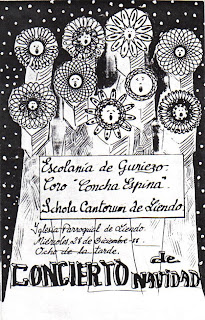 Escolanía de Guriezo.
Coro "Concha Espina".
Schola Cantorum de Liendo.
Iglesia Parroquial de Liendo
Miércoles, 28 de Diciembre
Ocho de la tarde.
CONCIERTO de NAVIDAD